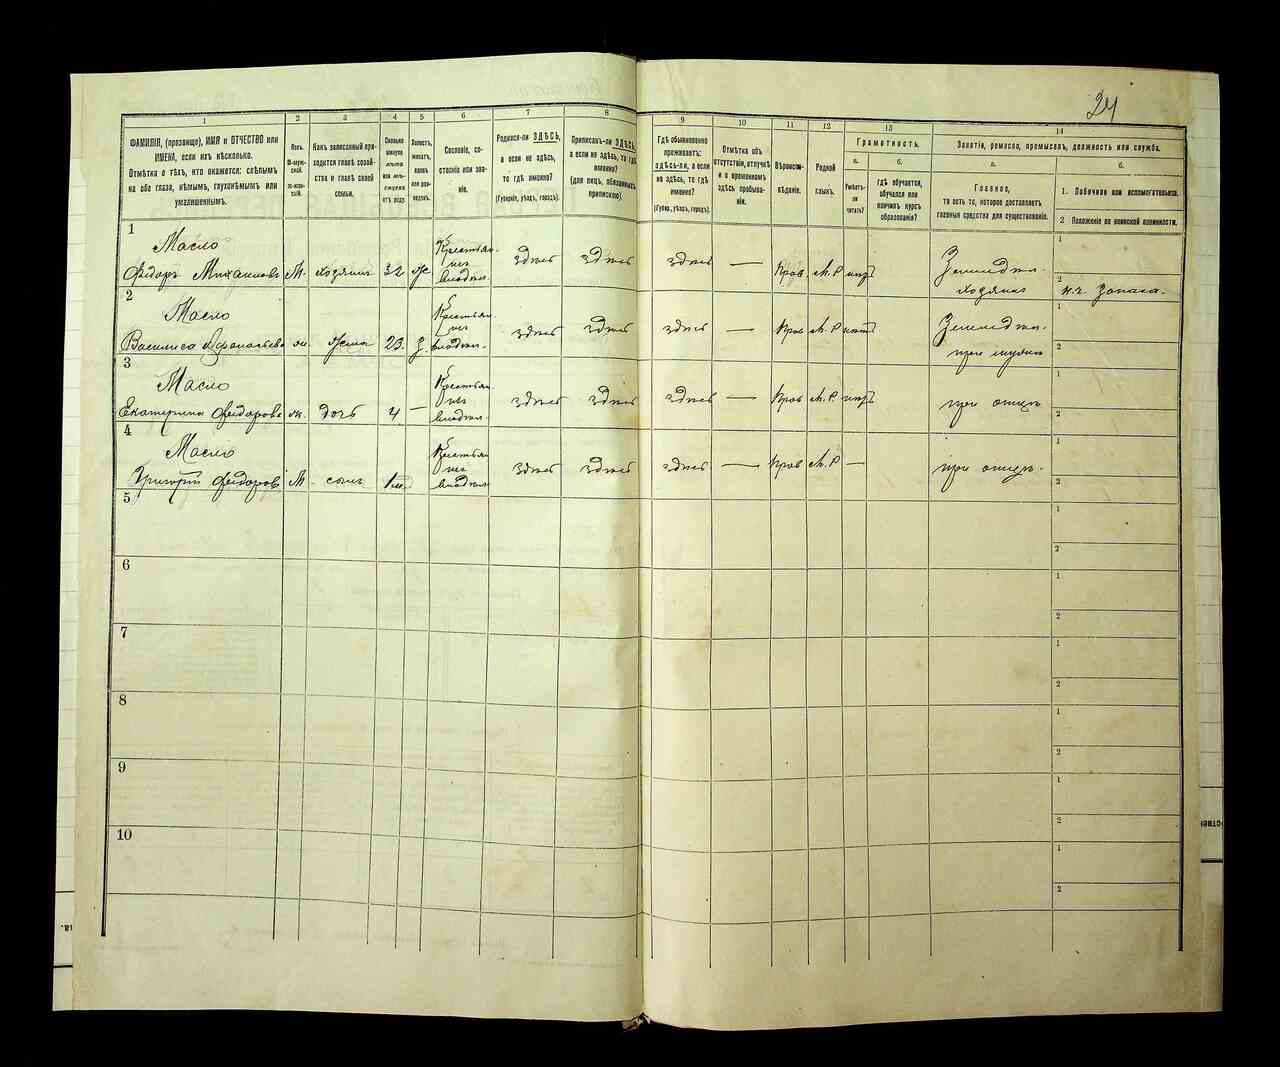 24
1
2
3
4
5
6
7
8
9
10
11
12
13
14
ФАМИЛІЯ, (прозвище), ИМЯ и ОТЧЕСТВО или
ИМЕНА, если ихъ нѣсколько.
Отмѣтка о тѣхъ, кто окажется: слѣпымъ
на оба глаза, нѣмымъ, глухонѣмымъ или
умалишеннымъ.
Полъ.
М-муж-
ской.
Ж-жен-
скій.
Какъ записанный при-
ходится главѣ хозяй-
ства и главѣ своей
семьи.
Сколько
минуло
лѣтъ
или мѣ-
сяцевъ
отъ роду.
Холостъ,
женатъ,
вдовъ
или раз-
веденъ.
Сословіе, со-
стояніе или зва-
ніе.
Родился-ли ЗДѢСЬ,
а если не здѣсь,
то гдѣ именно?
(Губернія, уѣздъ, городъ).
Приписанъ-ли ЗДѢСЬ,
а если не здѣсь, то гдѣ
именно?
(для лицъ, обязанныхъ
припискою).
Гдѣ обыкновенно
проживаетъ:
здѣсь-ли, а если
не здѣсь, то гдѣ
именно?
(Губер., уѣздъ, городъ).
Отмѣтка объ
отсутствіи, отлучкѣ
и о временномъ
здѣсь пребыва-
ніи.
Вѣроиспо-
вѣданіе.
Родной
языкъ.
Грамотность.
а.
Умѣетъ-
ли
читать?
б.
гдѣ обучается,
обучался или
кончилъ курсъ
образованія?
Занятіе, ремесло, промыселъ, должность или служба.
а.
Главное,
то есть то, которое доставляетъ
главныя средства для существованія.
б.
1. Побочное или вспомогательное.
2 Положеніе по воинской повинности.
1
Масло
Федоръ Михаиловъ М. хозяинъ 32 ж Крестьян. изъ владѣл. здѣсь здѣсь здѣсь — Прав. М.Р нѣтъ Земледѣл. хозяинъ
1
2
н.ч. запаса.
2
Масло
Василиса ж. жена 23. з. Крестьян. изъ владѣл. здѣсь здѣсь здѣсь — Прав М.Р нѣтъ Земледѣл. при мужѣ
1
2
3
Масло
Екатерина Федоров ж. дочь 4 — Крестьян. изъ владѣл. здѣсь здѣсь здѣсь — Прав М.Р нѣтъ при отцѣ
1
2
4
Масло
Григорій Федоров М. сынъ 1м. Крестьян изъ владѣл здѣсь здѣсь здѣсь — Прав М.Р — при отцѣ.
1
2
5
1
2
6
1
2
7
1
2
8
1
2
9
1
2
10
1
2